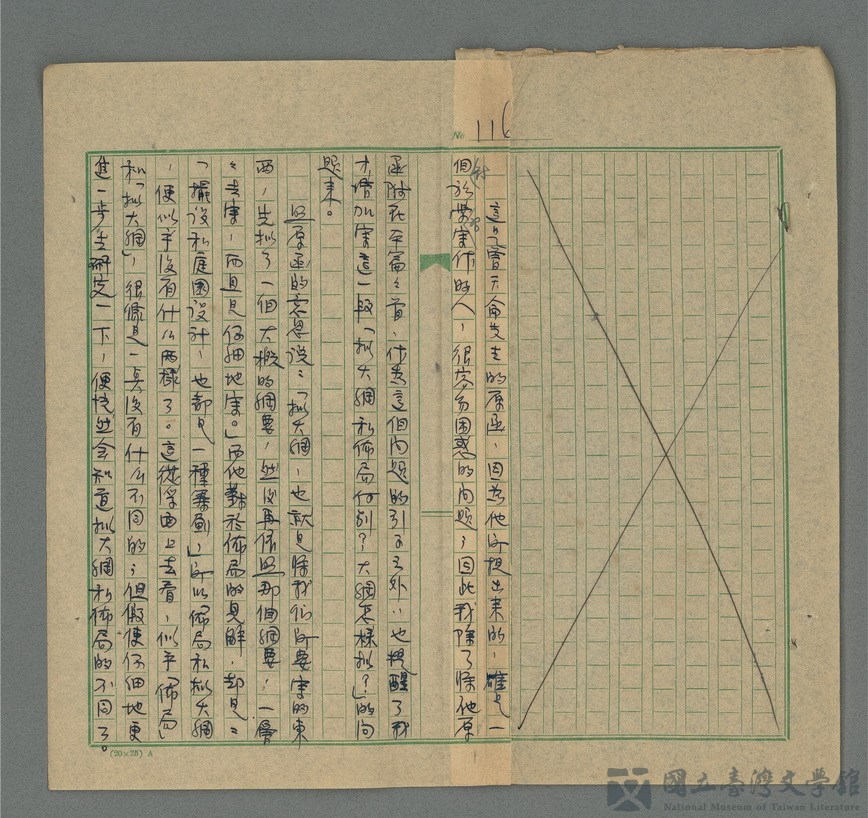 No 116
這是曾天命先生的原函，因為他所提出來的，雖是一
個初學寫作的人，很容易困惑的問題；因此我除了將他原
函附在本篇之首，作為這個問題的引子之外，也提醒了我
才增加寫這一段「擬大綱和佈局何別？大綱怎樣擬？」的問
題來。
照原函的意思說：「擬大綱，也就是將我們所要寫的東
西，先擬了一個大概的綱要，然後再依照那個綱要，一層
々去寫，而且是仔細地寫。」而他對於佈局的見解，却是：
「擺設和庭園設計，也都是一種策劃，」所以「佈局和擬大綱
，便似乎沒有什么兩樣了。這從浮面上去看，似乎「佈局」
和「擬大綱」，很像是一真沒有什么不同的；但假使仔細地更
進一步去研究一下，便恍然會知道擬大綱和佈局的不同了。
(20×25) A
國立臺灣文學館
National Museum of Taiwan Literature